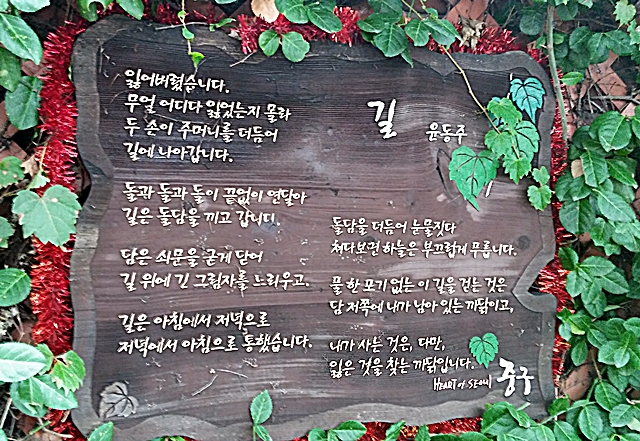 길
윤동주
잃어버렸습니다.
무얼 어디다 잃었는지 몰라
두 손이 주머니를 더듬어
길에 나아갑니다.
돌과 돌과 돌이 끝없이 연달아
길은 돌담을 끼고 갑니다.
담은 쇠문을 굳게 닫어
길 위에 긴 그림자를 느리우고,
길은 아침에서 저녁으로
저녁에서 아침으로 통했습니다.
돌담을 더듬어 눈물짓다
쳐다보면 하늘은 부끄럽게 푸릅니다.
풀 한 포기 없는 이 길을 걷는 것은
담 저쪽에 내가 남아 있는 까닭이고,
내가 사는 것은, 다만,
잃은 것을 찾는 까닭입니다.
HEART of SEOUL 중구